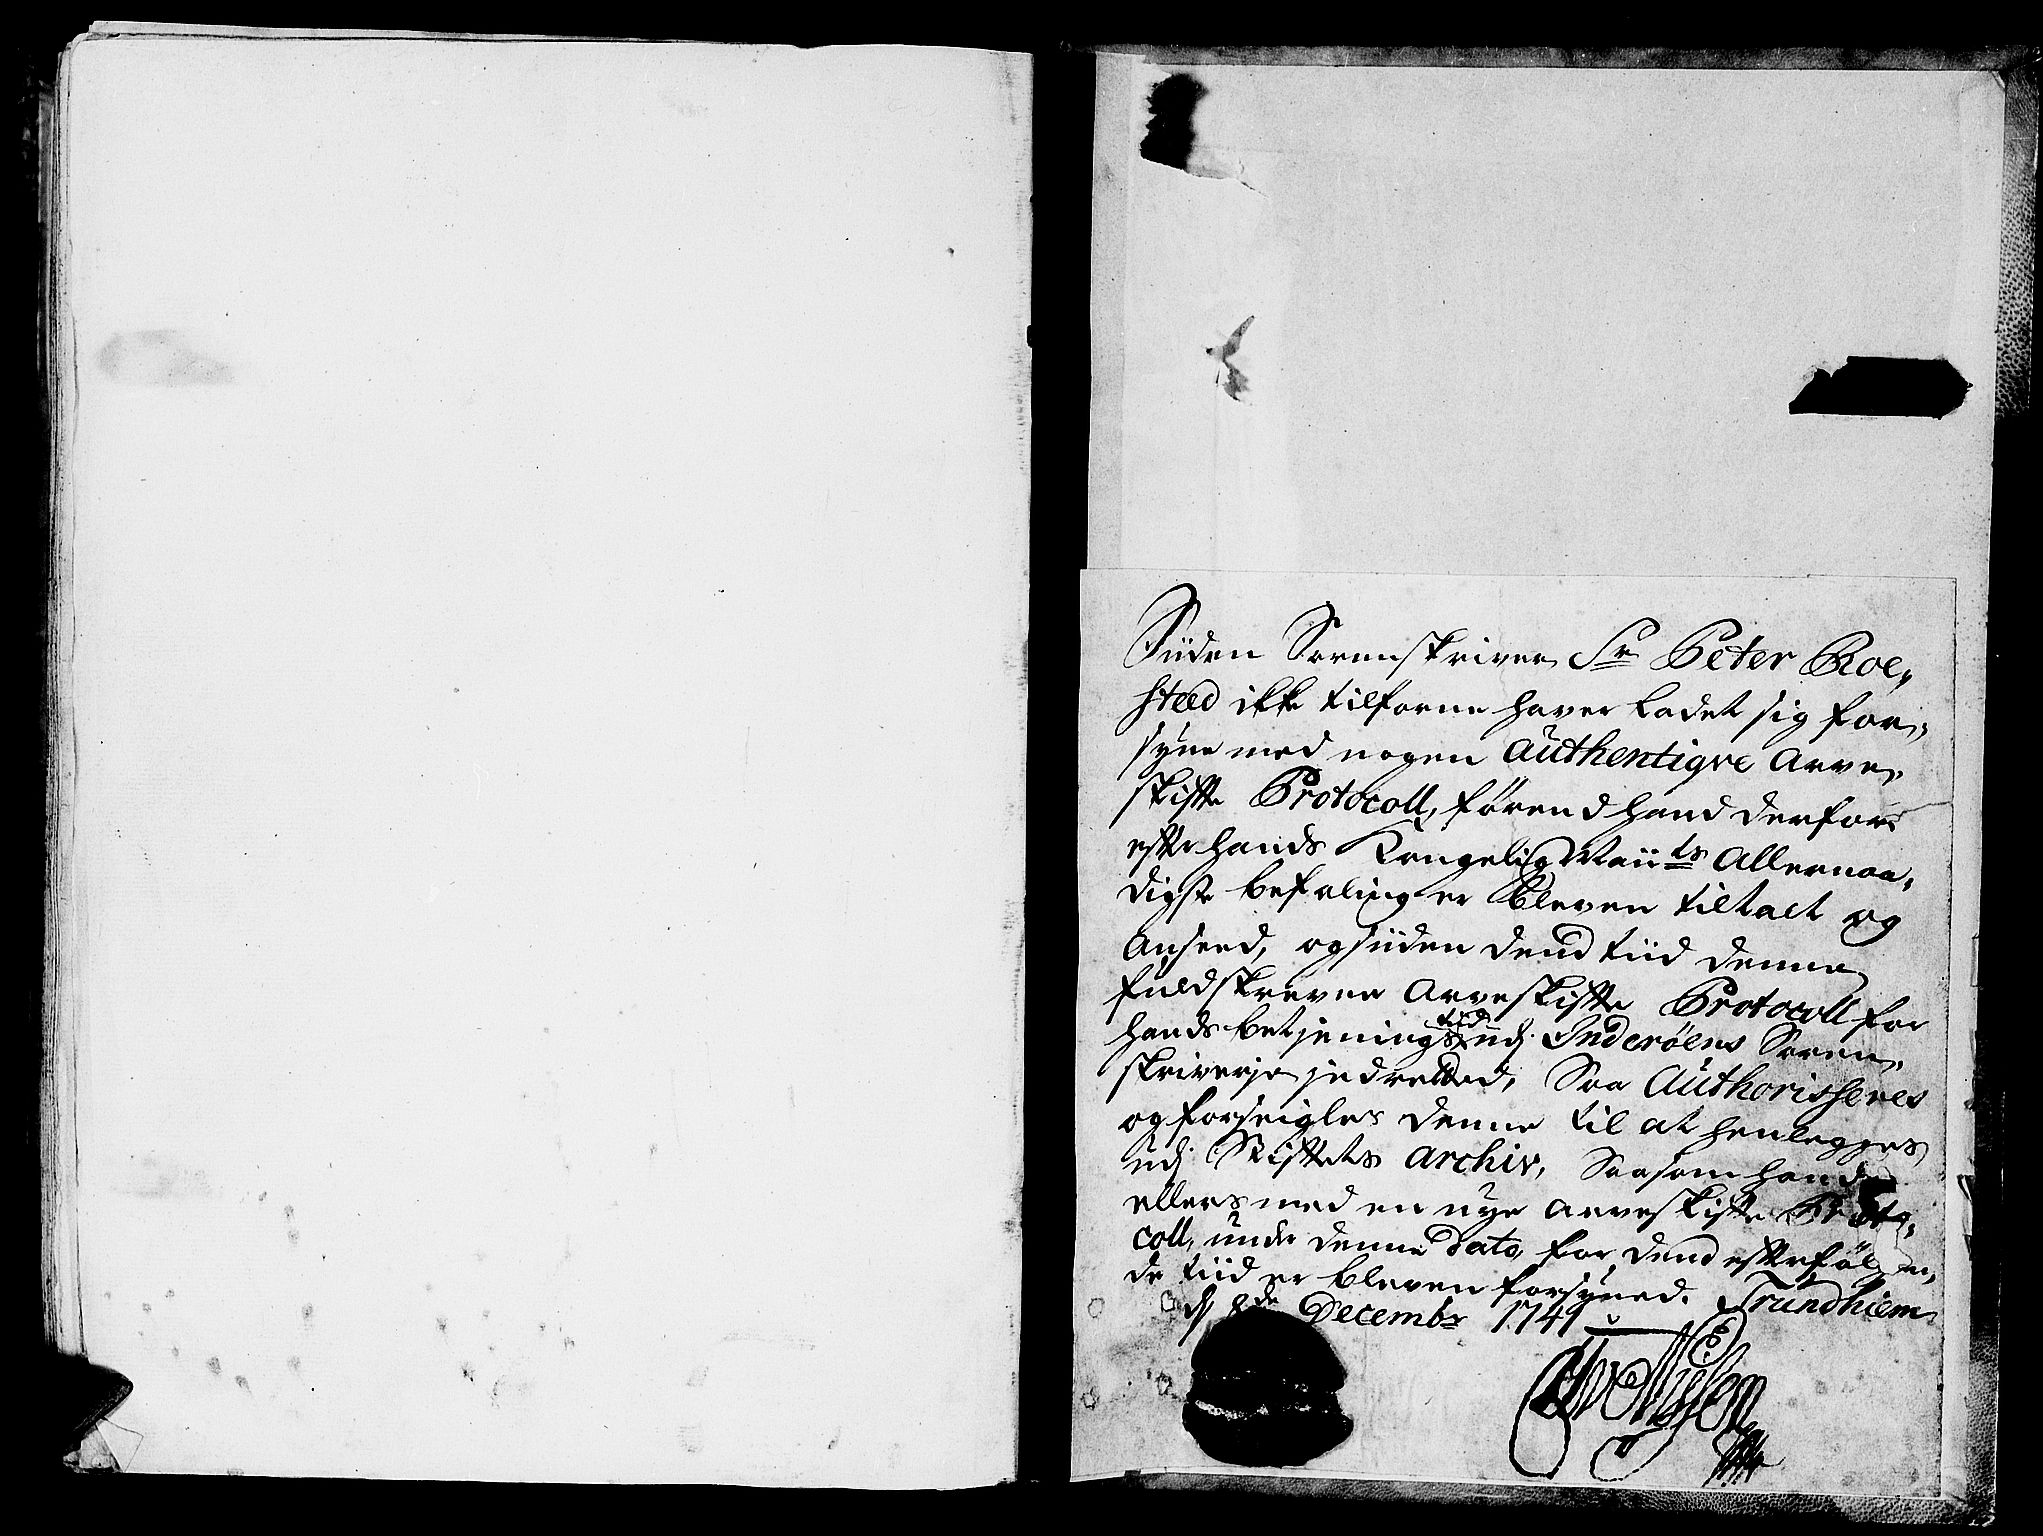 Siiden Sorenskriver Sr Peter Roe„
sted ikke tilforne haver ladet sig for„
syne med nogen Authentiqve Arve„
skifte Protocoll, førend hand derfor
efter hands Kongelig Maiits Allernaa„
digste befaling er bleven tiltalt og
Anseed, og siiden dend tiid denne
fuldskrevne Arveskifte Protocoll for
hands betjenings tiid udj Inderöens Soren„
skriverje indretted, Saa Authorisseres
og forseigles denne til at henlegges
udj Skiftets Archiv, Saasom hand
ellers med en nye arveskifte Proto„
coll, under denne Dato, for dend efterföl„en„
de tiid er bleven forsyned. Trundhiem
dj 8de Decembr 1741